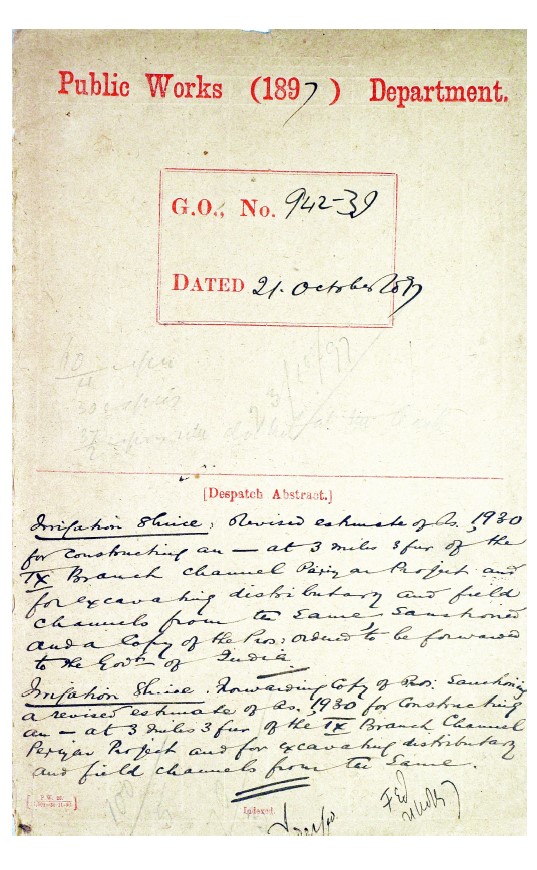 Public Works (1897) Department.
G.O., No. 942-
DATED 21. October 1897
[Despatch Abstract.]
Irrigation Sluice; Revised estimate of Rs. 1930
for constructing an — at 3 miles 3 fur of the
IX Branch channel Periyar Project and
for excavating distributary and field
channels from the same, Sanctioned
and a Copy of the Pros: ordered to be forwarded
to the Govt of India
Irrigation Sluice. Forwarding Copy of Pros: Sanctioning
a revised estimate of Rs. 1930 for constructing
an — at 3 miles 3 fur of the IX Branch Channel
Periyar Project and for excavating distributary
and field channels from the same.
Indexed.